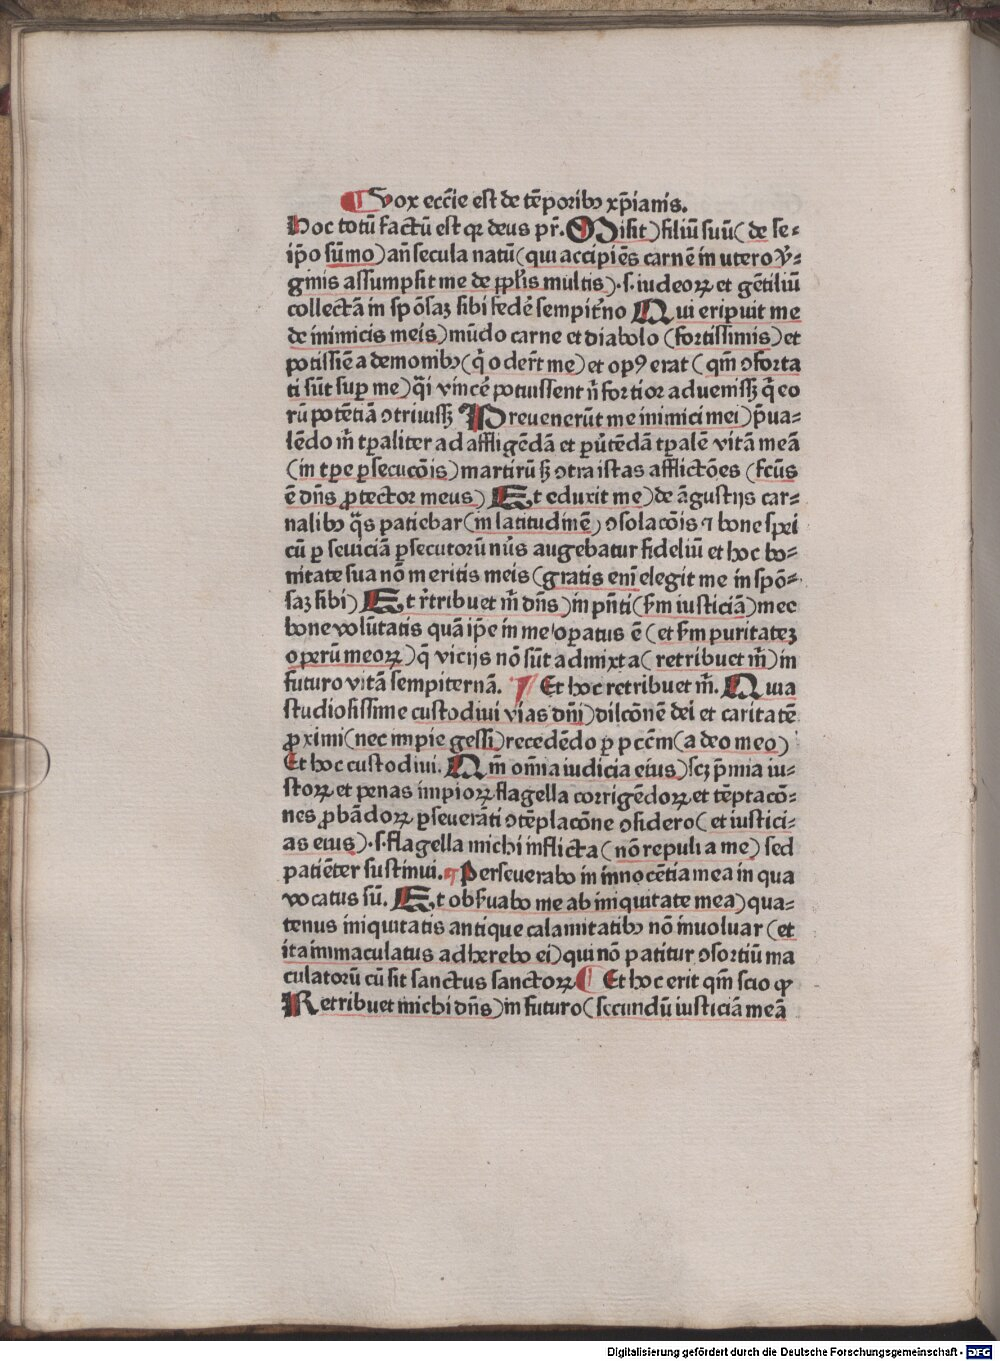 ¶ Vox eccͥie est de tēporibꝫ xp̄ianis.
Hoc totū factū est qꝛ deus pr̄. Misit) filiū suū( de se⸗
ip̄o sūmo) an̄ secula natū( qui accipiēs carnē in utero v̄⸗
ginis assumpsit me de pp̄lis multis).s. iudeoꝝ et gētiliū
collectā in spōsaꝫ sibi fedē sempit̄no Qui eripuit me
de inimicis meis) mūdo carne et diabolo (fortissimis) et
potissiē a demonibꝫ (q̄ oder̄t me) et opꝰ erat ( qm̄ ꝯforta
ti sūt suꝑ me) q̄i vincē potuissent n̄ fortior aduenissꝫ q̄ eo
rū potētiā ꝯtriuissꝫ Preuenerūt me inimici mei) p̄ua⸗
lēdo m̄ tꝑaliter ad affligēdā et ꝑūtēdā tꝑalē vitā meā
(in tꝑe ꝑsecucōis) martirū sꝫ ꝯtra istas afflictōes (fc̄us
ē dn̄s ꝓtector meus) Et eduxit me) de āgustijs car⸗
nalibꝫ q̄s patiebar( in latitudinē) ꝯsolacōis ⁊ bone spei
cū ꝑ seuiciā ꝑsecutorū nūs augebatur fideliū et hoc bo⸗
nitate sua nō meritis meis (gratis eni elegit me in spō⸗
saꝫ sibi) Et r̄tribuet m̄ dn̄s) in pn̄ti( s̄m iusticiā) mee
bone volūtatis quā ip̄e in me opatus ē ( et s̄m puritateꝫ
operū meoꝝ) q̄ vicijs nō sūt admixta( retribuet m̄) in
futuro vitā sempiternā. ¶ Et hoc retribuet m̄. Quia
studiosissime custodiui vias dn̄i) dilcōnē dei et caritatē
ꝓximi( nec impie gessi) recedēdo ꝑ pcc̄m( a deo meo)
Et hoc custodiui. Qm̄ om̄ia iudicia eius) scꝫ p̄mia iu⸗
stoꝝ et penas impioꝝ flagella corrigēdoꝝ et tēptacō⸗
nes ꝓbādoꝝ ꝑseuerāti ꝯtēplacōne ꝯsidero( et iustici⸗
as eius).s. flagella michi inflicta( nō repuli a me) sed
patiēter sustinui. ¶ Perseuerabo in innocētia mea in qua
vocatus sū. Et obs̄uabo me ab iniquitate mea) qua⸗
tenus iniquitatis antique calamitatibꝫ nō inuoluar (et
ita immaculatus adherebo ei) qui nō patitur ꝯsortiū ma
culatorū cū sit sanctus sanctoꝝ ¶ Et hoc erit qm̄ scio ꝙ
Retribuet michi dn̄s) in futuro( secundū iusticiā meā
Digitalisierung gefördert durch die Deutsche Forschungsgemeinschaft - DFG